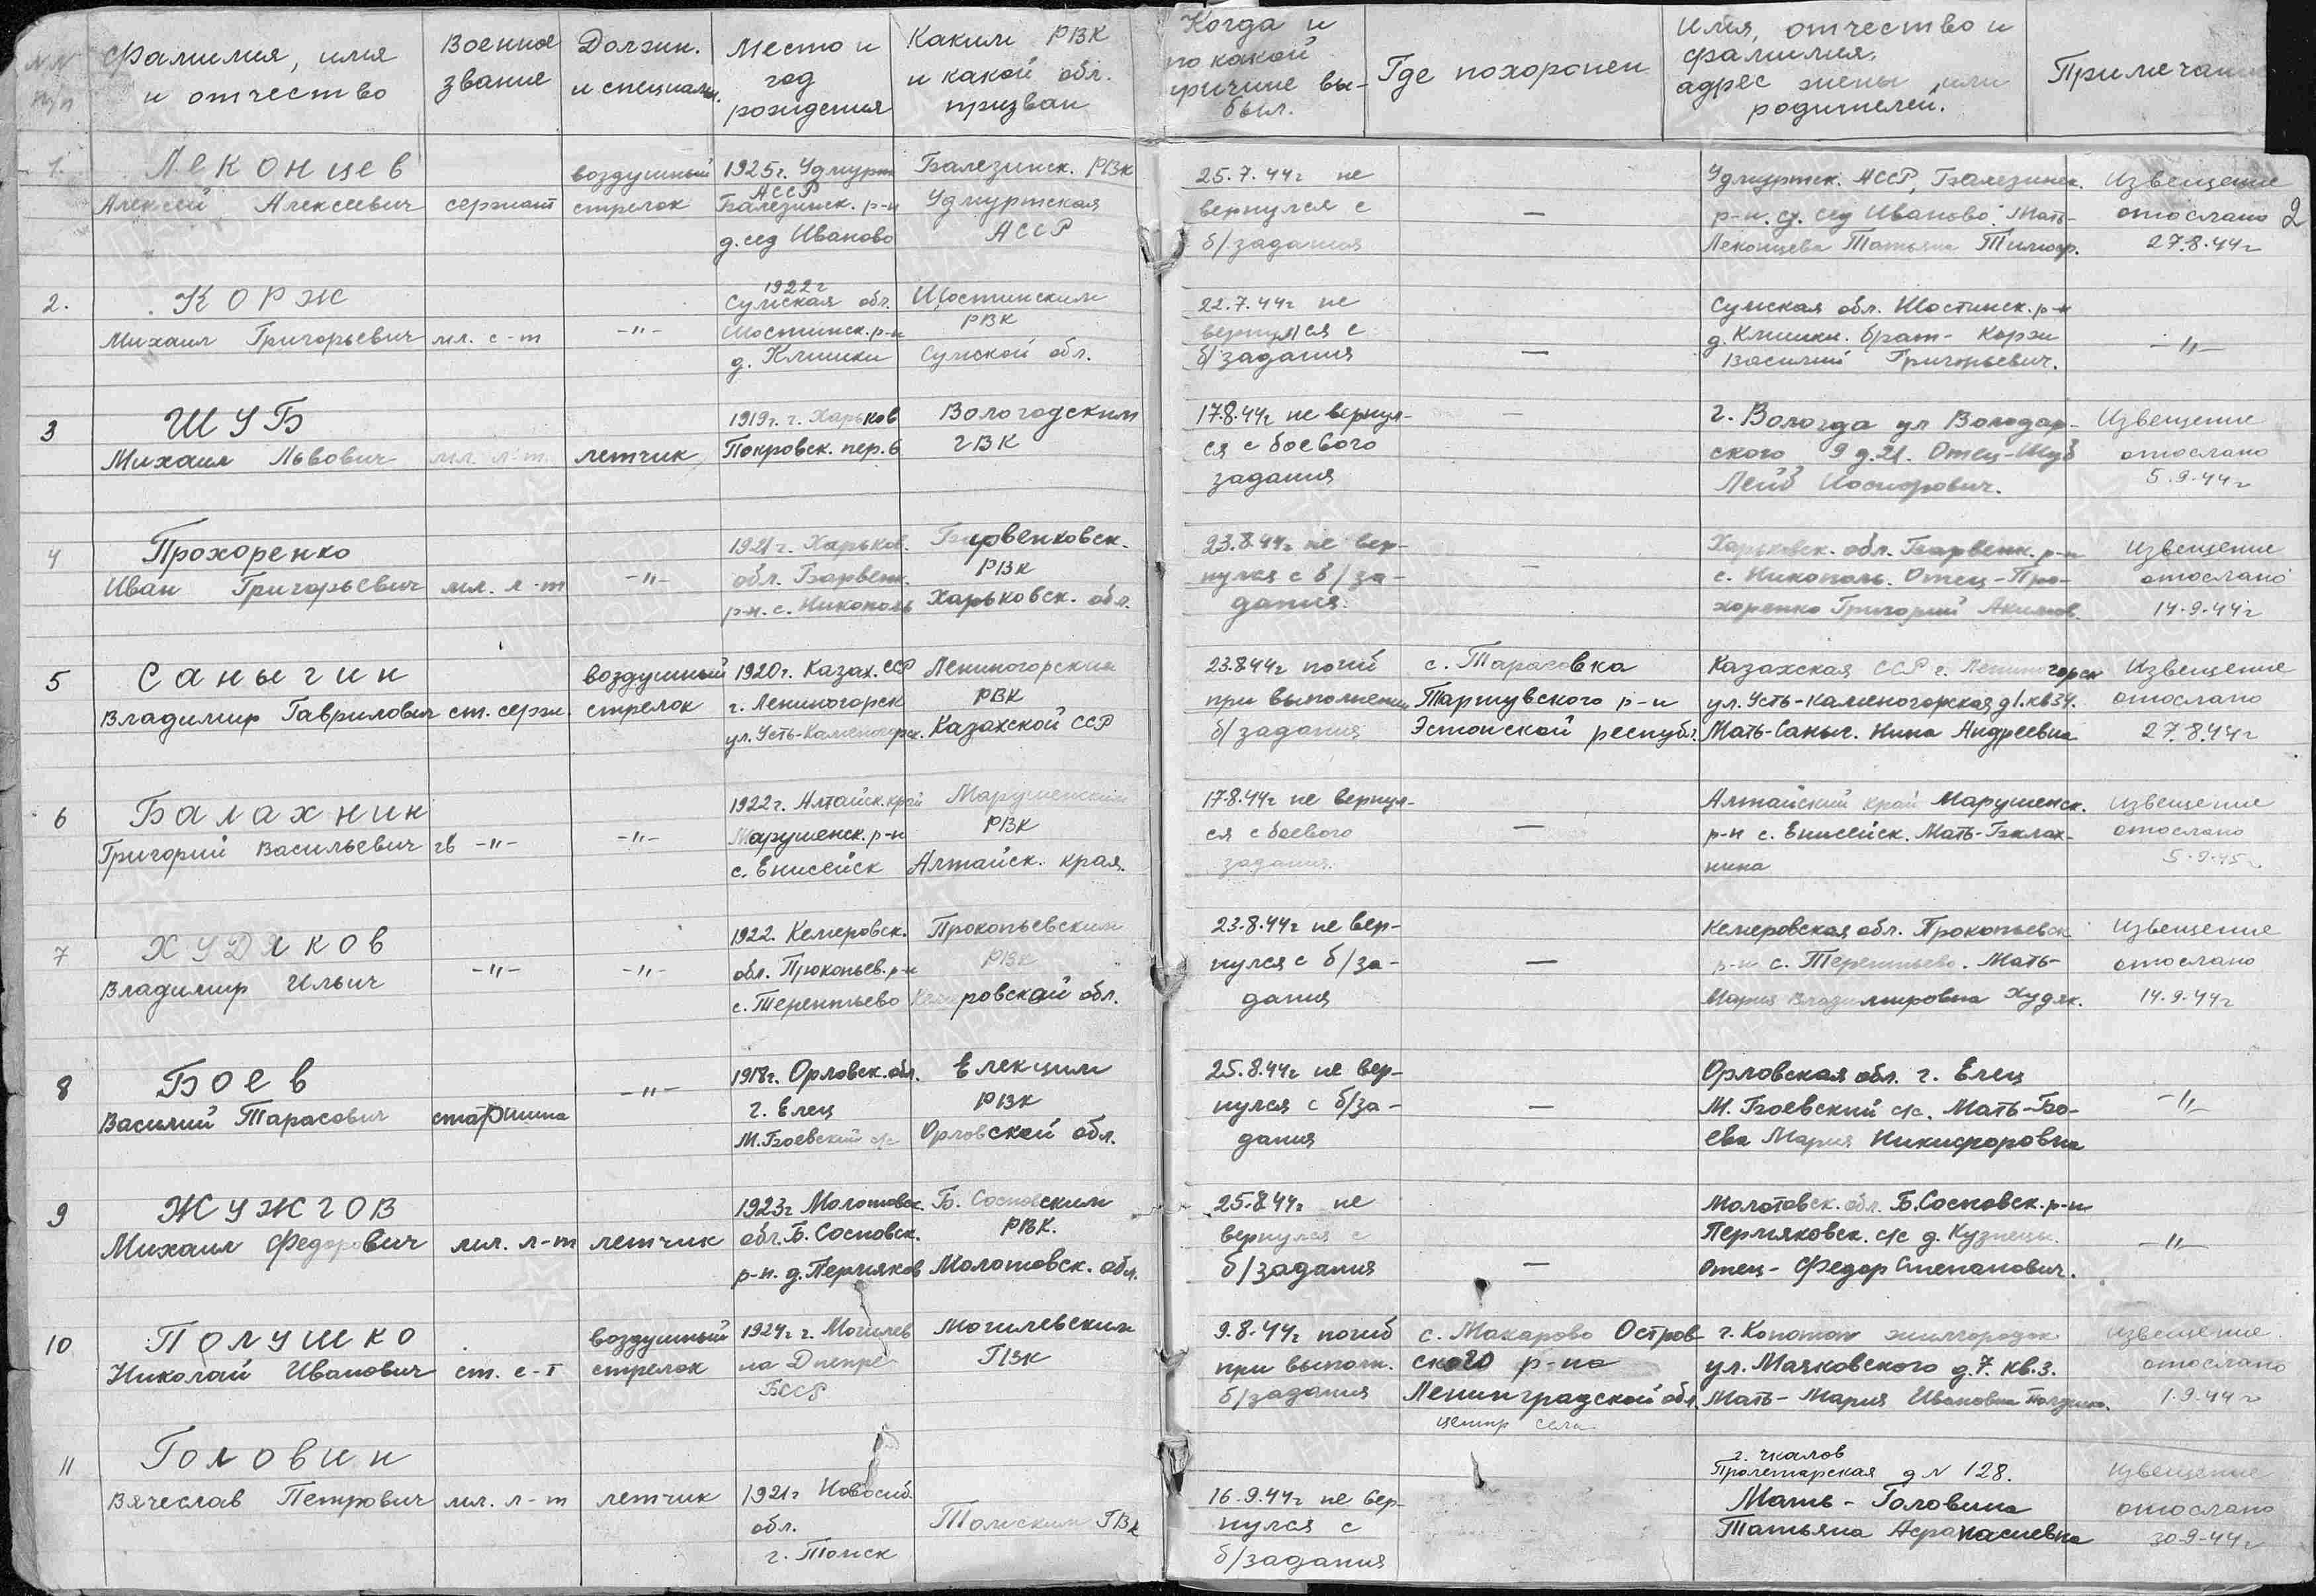 №№ Фамилия, имя Военное Должн. Место и Каким РВК Когда и Имя, отчество и
п/п и отчество звание и специальн. год и какой обл. по какой Где похоронен фамилия, Примечание
рождения призван причине вы- адрес жены или
был. родителей.
1. Леконцев воздушный 1925г. Удмурт Балезинск. РВК 25.7.44г не Удмуртск. АССР, Балезинск. Извещение
Алексей Алексеевич сержант стрелок АССР Балезинск. р-н Удмуртская вернулся с — р-н. Иваново. Мать- отослано 2
д. Иваново АССР б/задания Леконцева Татьяна 27.8.44г
2. КОРЖ 1922г Сумская обл. Шостинским 22.7.44г не Сумская обл. Шостинск. р-н
Михаил Григорьевич мл. с-т -"- Шостинск. р-н РВК вернулся с д. Клишки. брат- Корж -"-
д. Клишки Сумской обл. б/задания — Василий Григорьевич.
3 ШУБ 1919г. г. Харьков Вологодским 17.8.44г не вернул- — г. Вологда ул Володар- Извещение
Михаил Львович мл. л-т. летчик Покровск. пер. 6 ГВК ся с боевого ского 9 д. 21. Отец-Шуб отослано
задания Лейб 5.9.44г
4 Прохоренко 1921г. Харьков. Барвенковск. 23.8.44г не вер- Харьковск. обл. Барвенк. р-н Извещение
Иван Григорьевич мл. л-т -"- обл. Барвенк. РВК нулся с б/за- — с. Никополь. Отец-Про- отослано
р-н. с. Никополь Харьковск. обл. дания. хоренко Григорий Акимов. 14.9.44г
5 Саныгин воздушный 1920г. Казах. ССР Лениногорским 23.8.44г погиб с. Тарасовка Казахская ССР г. Лениногорск Извещение
Владимир Гаврилович ст. серж. стрелок г. Лениногорск РВК при выполнении Тартувского р-н ул. Усть-каменогорская д1. кв34. отослано
ул. Усть-Каменогорск. Казахской ССР б/задания Эстонской республ. Мать-Саныг. Нина Андреевна 27.8.44г
6 Балахнин 1922г. Алтайск. край Марушенским 17.8.44г не вернул- Алтайский край Марушенск. Извещение
Григорий Васильевич гв -"- -"- Марушенск. р-н РВК ся с боевого — р-н с. Енисейск. Мать-Балах- отослано
с. Енисейск Алтайск. края. задания. нина 5.9.45г
7 ХУДЯКОВ 1922. Кемеровск. Прокопьевским 23.8.44г не вер- Кемеровская обл. Прокопьевск Извещение
Владимир Ильич -"- -"- обл. Прокопьев. р-н РВК нулся с б/за- — р-н с. Терентьево. Мать- отослано
с. Терентьево Кемеровской обл. дания Мария Владимировна Худяк. 14.9.44г
8 Боев 1918г. Орловск. обл. Елекцим 25.8.44г не вер- Орловская обл. г. Елец
Василий Тарасович старшина -"- г. Елец РВК нулся с б/за- — М. Боевский с/с. Мать-Бо- -"-
М. Боевский с/с Орловской обл. дания ева Мария Никифоровна
9 ЖУЖГОВ 1923г Молотовск. Б. Сосновским 25.8.44г не Молотовск. обл. Б. Сосновск. р-н
Михаил Федорович мл. л-т летчик обл. Б. Сосновск. РВК. вернулся с Пермяковск. с/с д. Кузнецы. -"-
р-н. д. Пермяков Молотовск. обл. б/задания — отец- Федор Степанович.
10 Полушко воздушный 1924г. г. Могилев Могилевским 9.8.44г погиб с. Макарово Остров г. Конотоп жилгородок извещение
Николай Иванович ст. с-т стрелок на Днепре ГВК при выполн. ского р-на ул. Маяковского д. 7 кв. 3. отослано
БССР б/задания Ленинградской обл. Мать- Мария Ивановна Полушко. 1.9.44г
центр села
11 Головин г. Чкалов
Пролетарская д № 128. извещение
Вячеслав Петрович мл. л-т летчик 1921г Новосиб. 16.9.44г не вер- Мать- Головина отослано
обл. Томским ГВК нулся с Татьяна Афанасиевна 30.9.44г
г. Томск б/задания